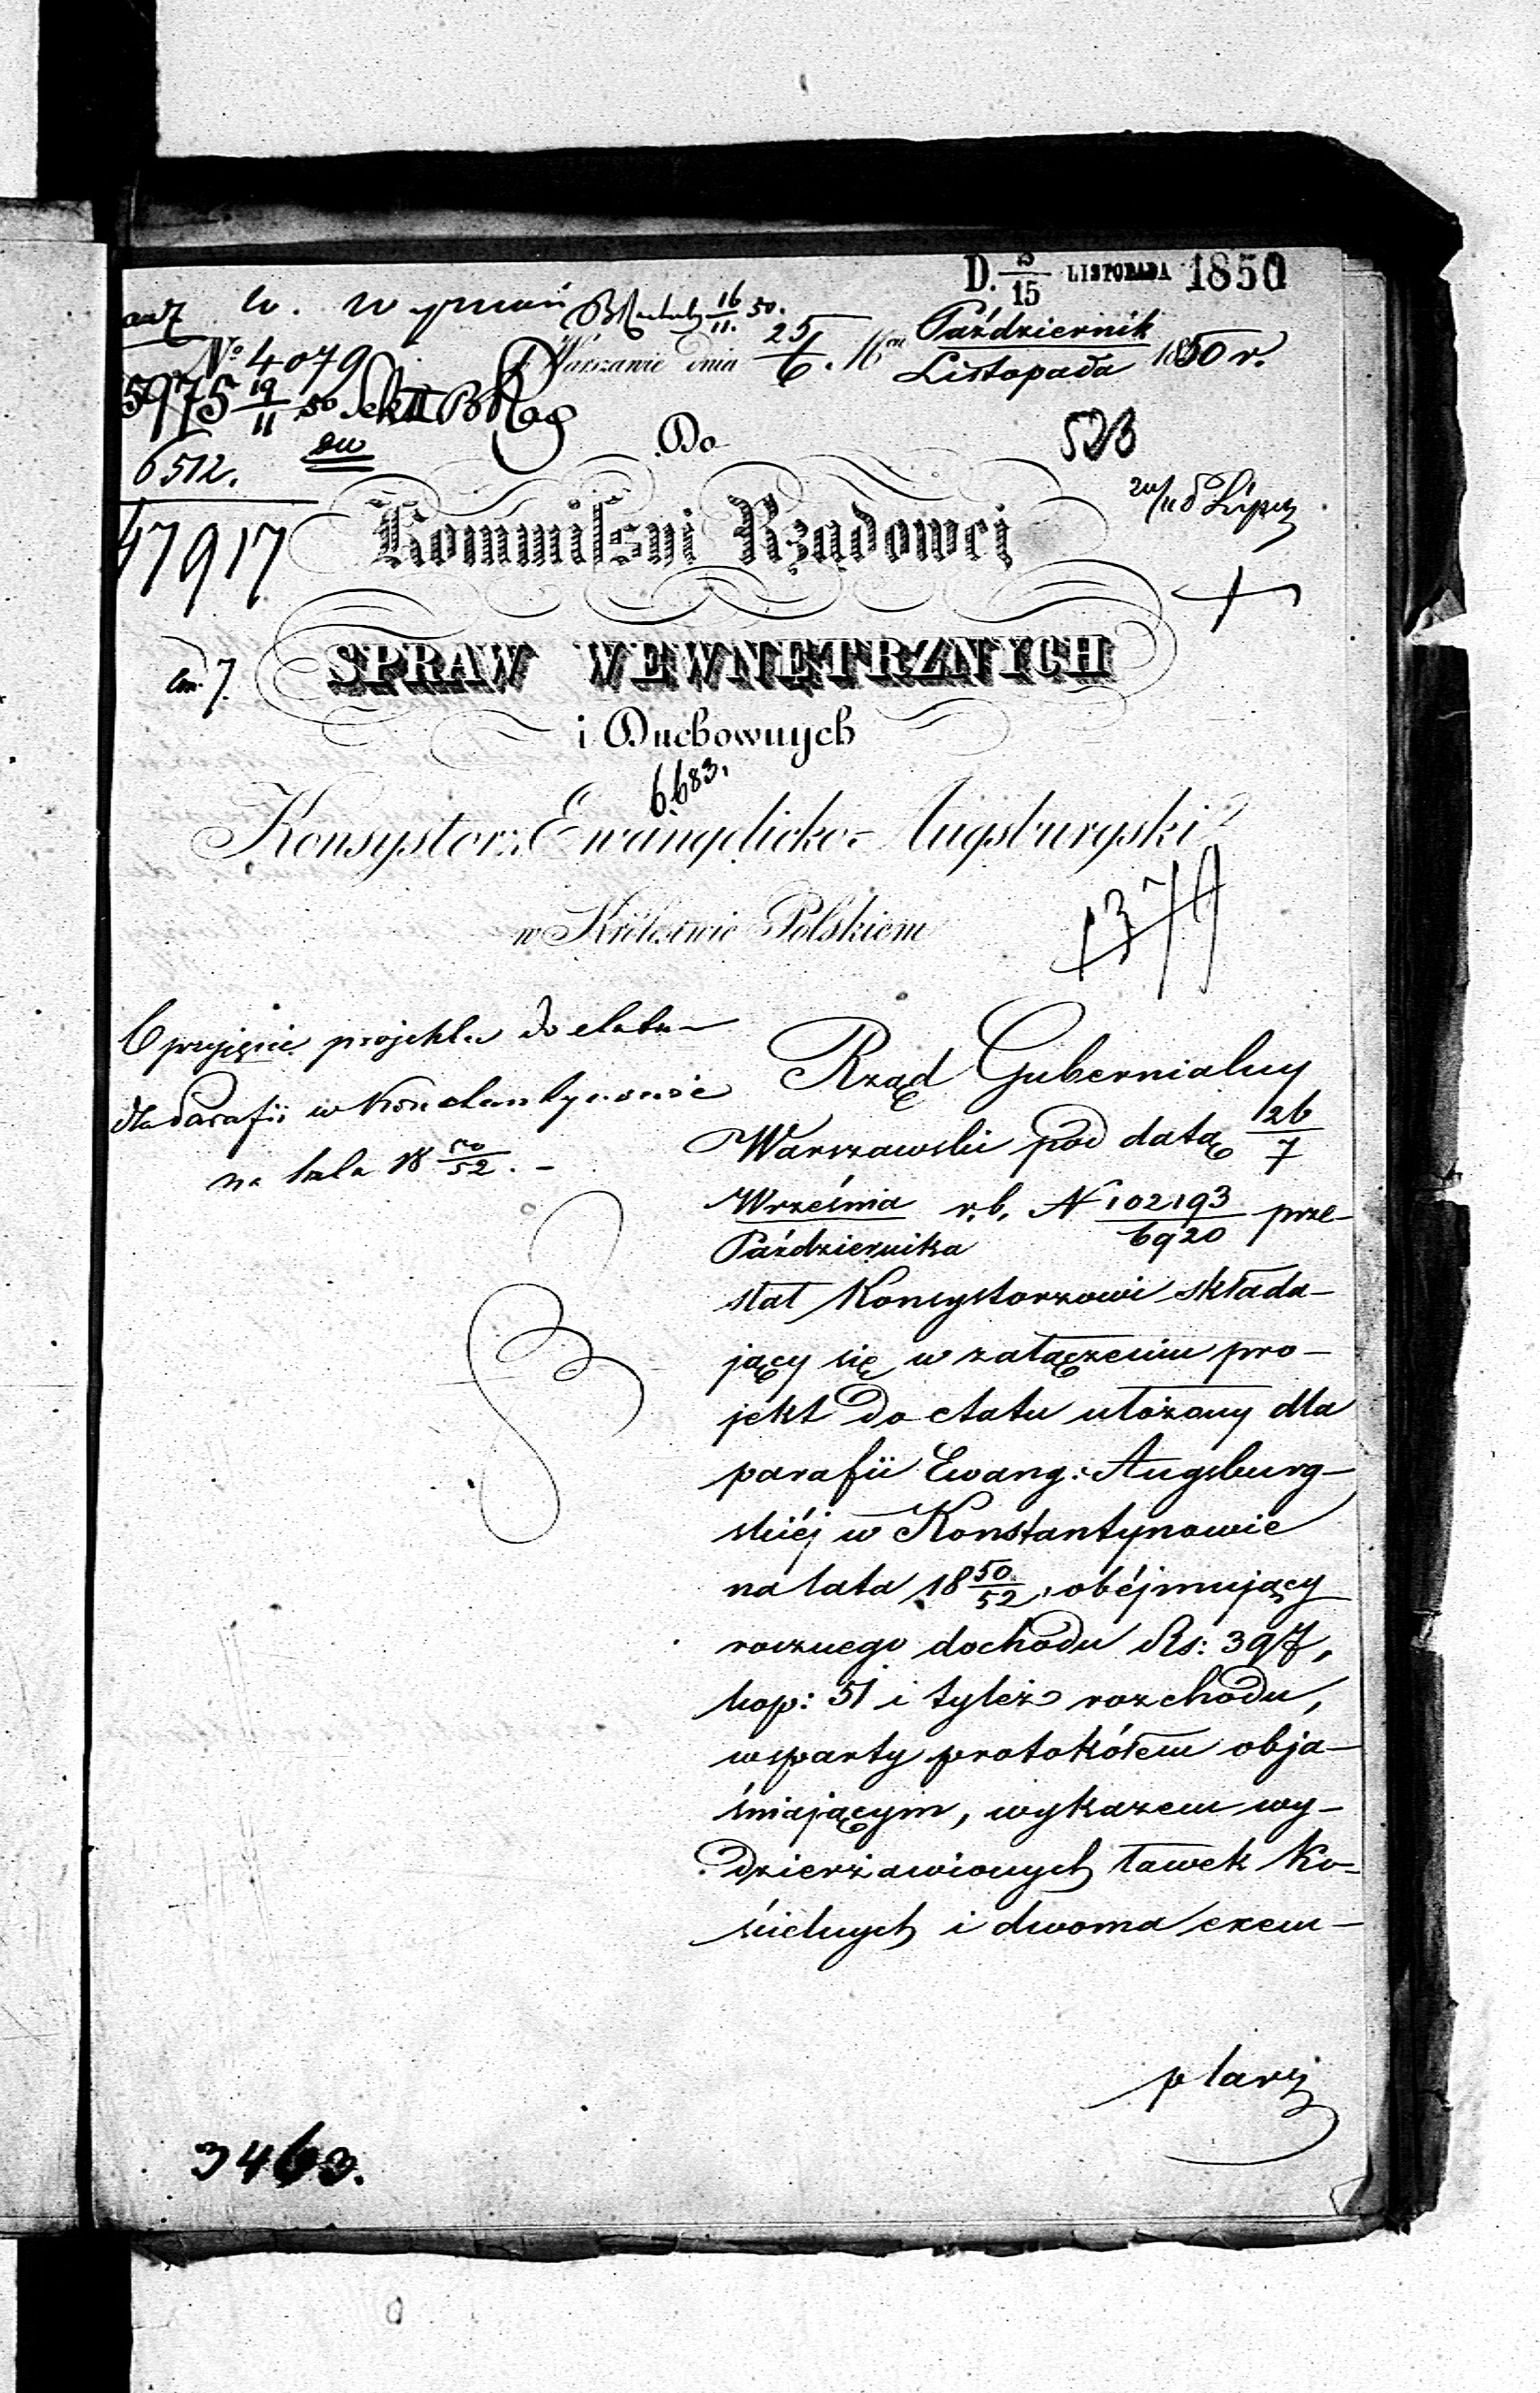 D. 3/15 LISTOPADA 1850
№ 4079
w Warszawie dnia 25/6. Mca Październik/Listopada 1850 r.
5975 19/11 50
6512.
Do
523
47917
Kommissyi Rządowéj
SPRAW WEWNĘTRZNYCH
i Duchownych
6683.
Konsystorz Ewangelicko-Augsburgski
w Królestwie Polskiem
1379
O przyjęcie projektu do etatu
dla Parafii w Konstantynowie
na lata 18 50/52. –
Rząd Gubernialny
Warszawski pod datą 26/7
Września/Października r. b. N 102193/6920 prze-
słał Konsystorzowi składa-
jący się w załączeniu pro-
jekt do etatu ułożony dla
parafii Ewang: Augsburg-
skiéj w Konstantynowie
na lata 18 50/52, obéjmujący
rocznego dochodu Rs: 397,
kop: 51 i tyleż rozchodu,
wsparty protokółem obja-
śniającym, wykazem wy-
dzierżawionych ławek Ko-
ścielnych i dwoma exem-
plarz
3463.